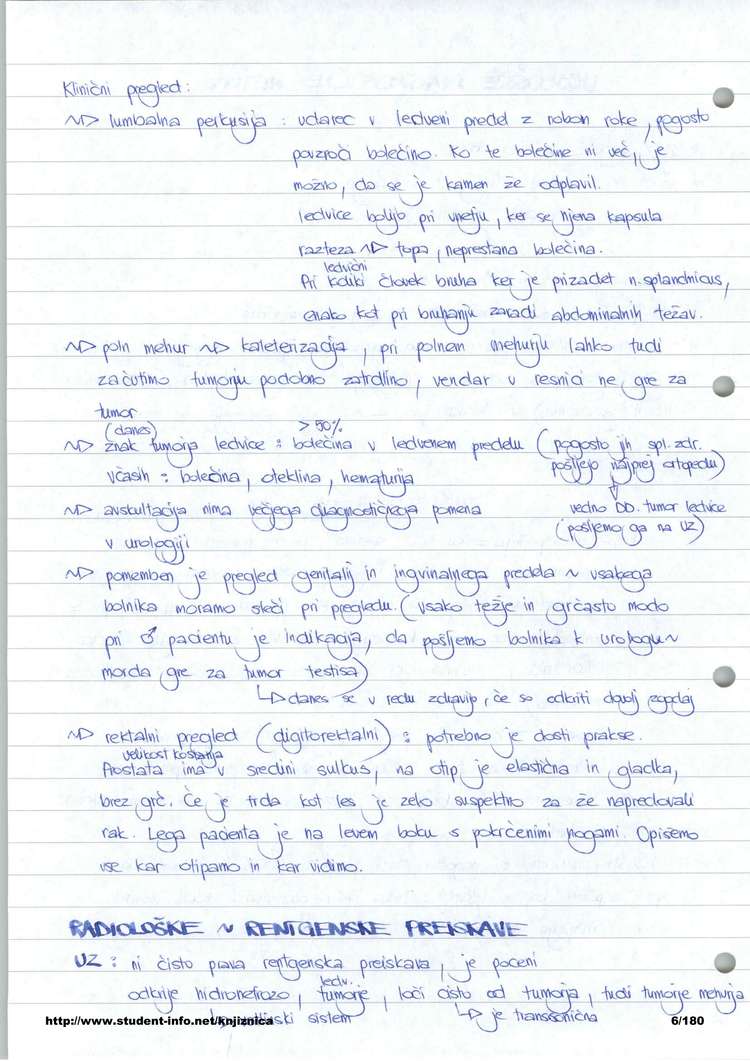 Klinični pregled:
~> lumbalna perkusija : udarec v ledveni predel z robom roke, pogosto
povzroči bolečino. Ko te bolečine ni več, je
možno, da se je kamen že odplavil.
ledvice bolijo pri vnetju, ker se njena kapsula
razteza ~> topa, neprestana bolečina.
ledvični
Pri koliki človek bruha ker je prizadet n. splandnicus,
enako kot pri bruhanju zaradi abdominalnih težav.
~> poln mehur ~> kateterizacija, pri polnem mehurju lahko tudi
začutimo tumorju podobno zatrdlino, vendar v resnici ne gre za
tumor
(danes) > 50%
~> znak tumorja ledvice : bolečina v ledvenem predelu (pogosto jih spl. zdr.
včasih : bolečina, oteklina, hematurija pošljejo najprej ortopedu)
~> avskultacija nima večjega diagnostičnega pomena vedno DD. tumor ledvice
v urologiji (pošljemo ga na UZ)
~> pomemben je pregled genitalij in ingvinalnega predela ~ vsakega
bolnika moramo sleči pri pregledu. (vsako težje in grčasto modo
pri ♂ pacientu je indikacija, da pošljemo bolnika k urologu ~
morda gre za tumor testisa)
↳ danes se v redu zdravijo, če so odkriti dovolj zgodaj
~> rektalni pregled (digitorektalni) : potrebno je dosti prakse.
velikost kostanja
Prostata ima v sredini sulkus, na otip je elastična in gladka,
brez grč. Če je trda kot les je zelo suspektno za že napredovali
rak. Lega pacienta je na levem boku s pokrčenimi nogami. Opišemo
vse kar otipamo in kar vidimo.
RADIOLOŠKE ~ RENTGENSKE PREISKAVE
UZ : ni čisto prava rentgenska preiskava, je poceni
ledv.
odkrije hidronefrozo, tumorje, loči cisto od tumorja, tudi tumorje mehurja
sistem ↳ je transsonična
http://www.student-info.net/knjiznica 6/180